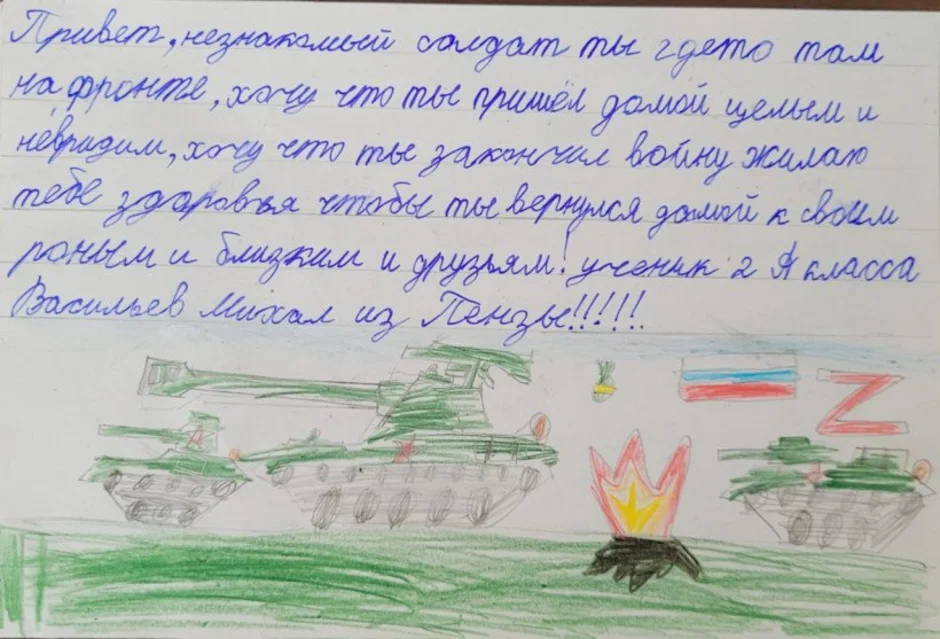 Привет, незнакомый солдат ты гдето там
на фронте, хочу что ты пришёл домой целым и
невридим, хочу что ты закончил войну жилаю
тебе здоровья чтобы ты вернулся домой к своим
роным и близким и друзьям! ученик 2 А класса
Васильев Михал из Пензы!!!!!
Z